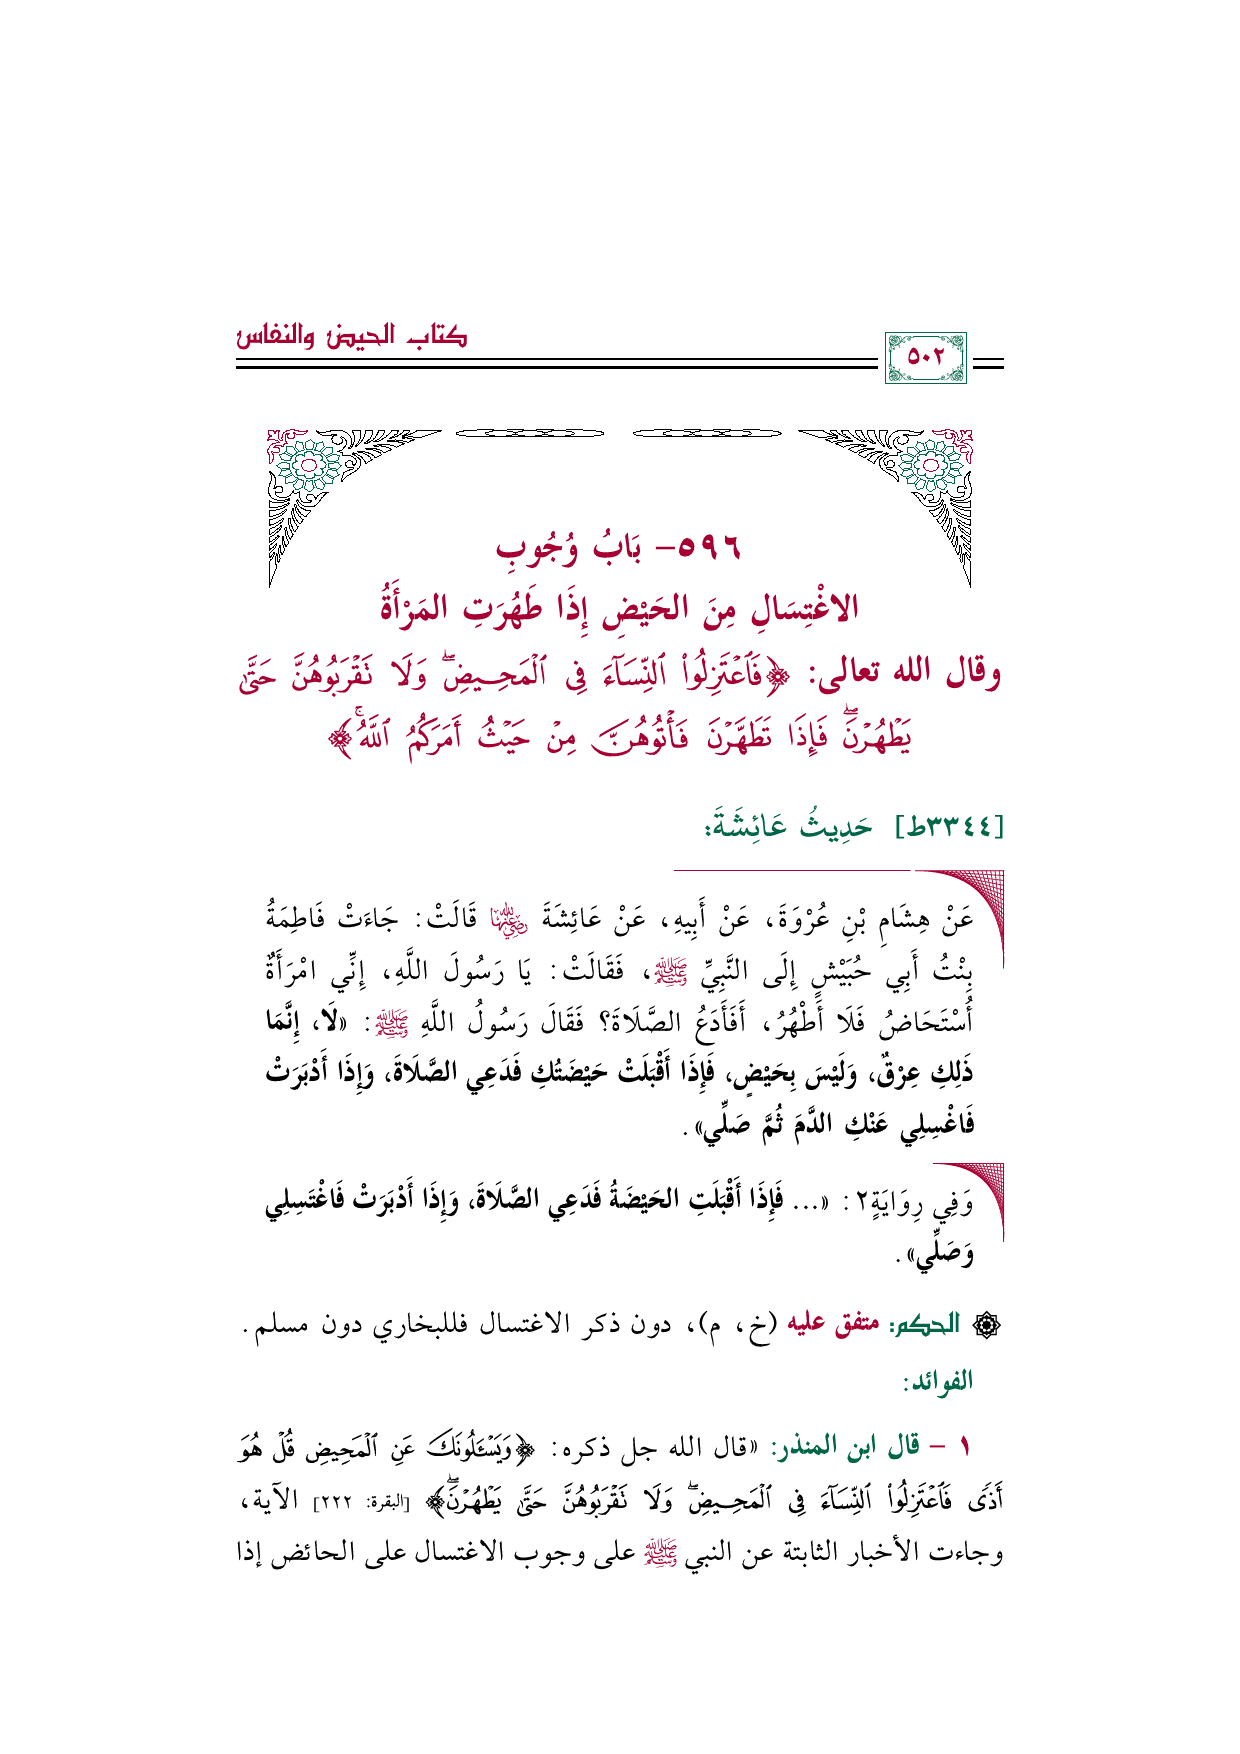 كتاب الحيض والنفاس
٥٠٢
٥٩٦- بَابُ وُجُوبِ
الاغْتِسَالِ مِنَ الحَيْضِ إِذَا طَهُرَتِ المَرْأَةُ
وقال الله تعالى: ﴿فَٱعۡتَزِلُواْ ٱلنِّسَآءَ فِي ٱلۡمَحِيضِۖ وَلَا تَقۡرَبُوهُنَّ حَتَّىٰ
يَطۡهُرۡنَۖ فَإِذَا تَطَهَّرۡنَ فَأۡتُوهُنَّ مِنۡ حَيۡثُ أَمَرَكُمُ ٱللَّهُۚ﴾
[٣٣٤٤ط] حَدِيثُ عَائِشَةَ:
عَنْ هِشَامِ بْنِ عُرْوَةَ، عَنْ أَبِيهِ، عَنْ عَائِشَةَ رضي الله عنها قَالَتْ: جَاءَتْ فَاطِمَةُ
بِنْتُ أَبِي حُبَيْشٍ إِلَى النَّبِيِّ ﷺ، فَقَالَتْ: يَا رَسُولَ اللَّهِ، إِنِّي امْرَأَةٌ
أُسْتَحَاضُ فَلَا أَطْهُرُ، أَفَأَدَعُ الصَّلَاةَ؟ فَقَالَ رَسُولُ اللَّهِ ﷺ: «لَا، إِنَّمَا
ذَلِكِ عِرْقٌ، وَلَيْسَ بِحَيْضٍ، فَإِذَا أَقْبَلَتْ حَيْضَتُكِ فَدَعِي الصَّلَاةَ، وَإِذَا أَدْبَرَتْ
فَاغْسِلِي عَنْكِ الدَّمَ ثُمَّ صَلِّي».
وَفِي رِوَايَةٍ٢: «... فَإِذَا أَقْبَلَتِ الحَيْضَةُ فَدَعِي الصَّلَاةَ، وَإِذَا أَدْبَرَتْ فَاغْتَسِلِي
وَصَلِّي».
الحكم: متفق عليه (خ، م)، دون ذكر الاغتسال فللبخاري دون مسلم.
الفوائد:
١ - قال ابن المنذر: «قال الله جل ذكره: ﴿وَيَسۡـَٔلُونَكَ عَنِ ٱلۡمَحِيضِ قُلۡ هُوَ
أَذٗى فَٱعۡتَزِلُواْ ٱلنِّسَآءَ فِي ٱلۡمَحِيضِۖ وَلَا تَقۡرَبُوهُنَّ حَتَّىٰ يَطۡهُرۡنَۖ﴾ [البقرة: ٢٢٢] الآية،
وجاءت الأخبار الثابتة عن النبي ﷺ على وجوب الاغتسال على الحائض إذا